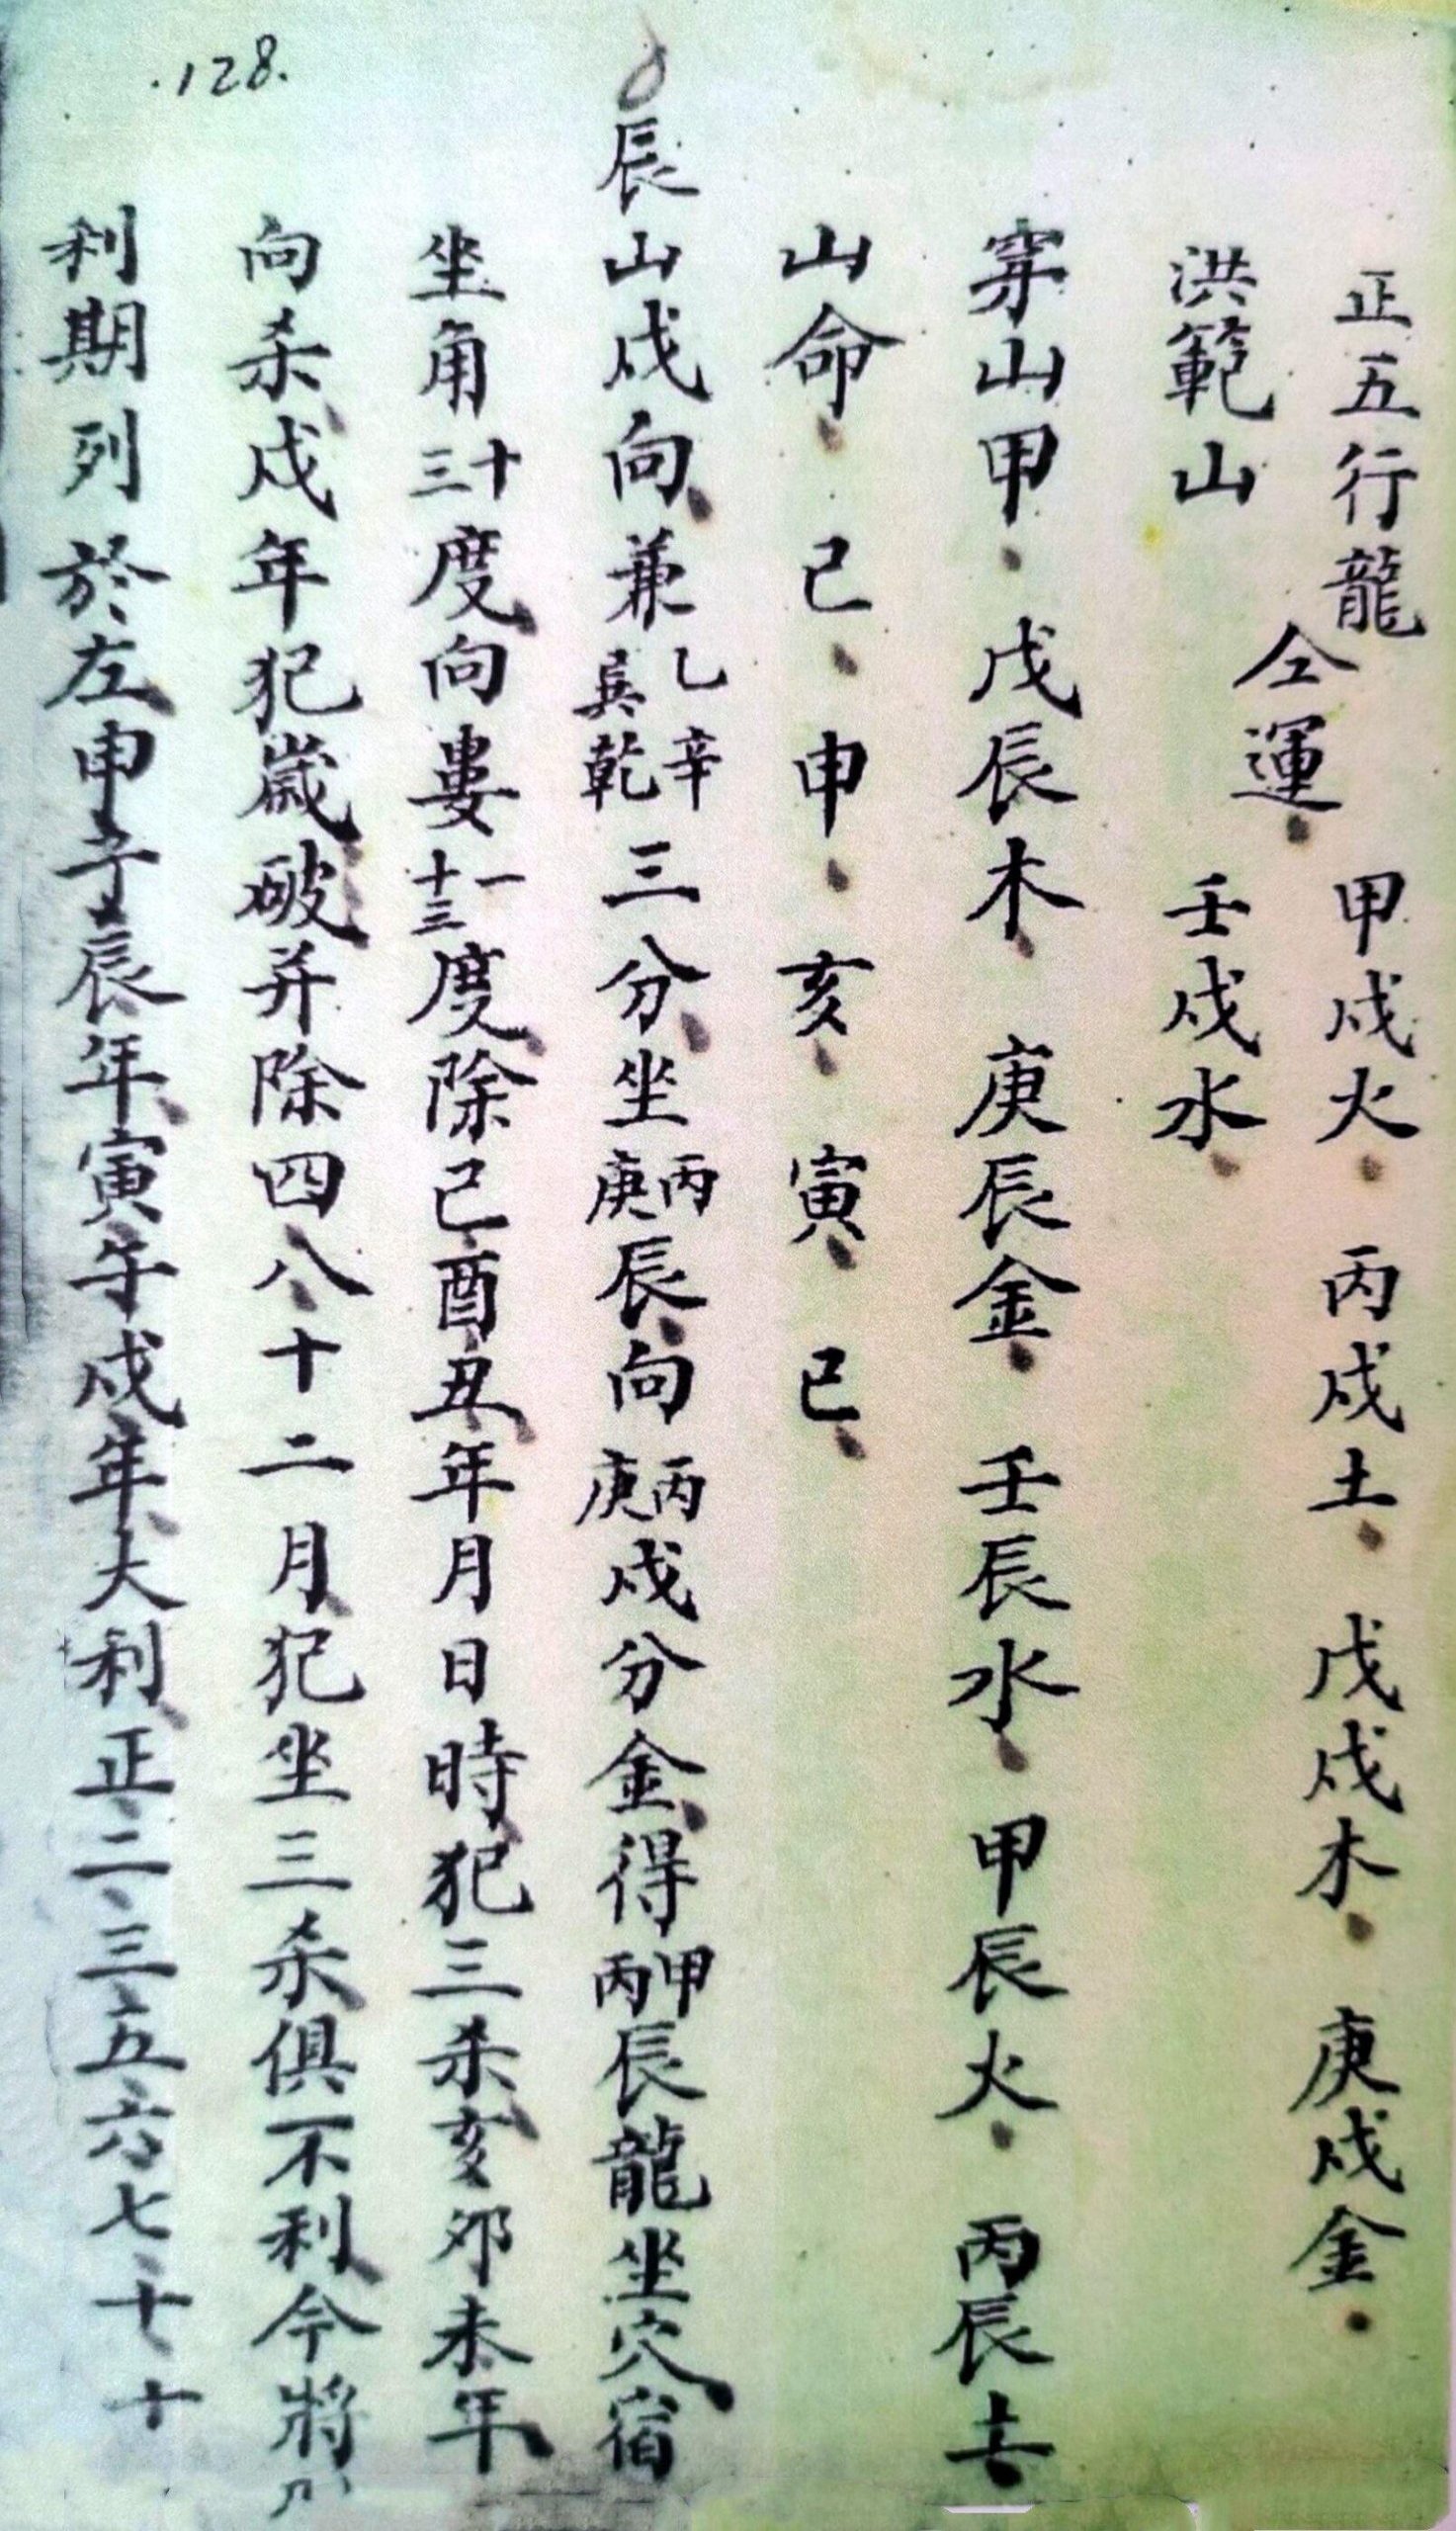 .128.
正五行龍
洪範山
仝運、
甲戌火、丙戌土、戊戌木、庚戌金、
壬戌水、
穿山甲、戊辰木、庚辰金、壬辰水、甲辰火、丙辰土
山命、己、申、亥、寅、巳、
辰山戌向、兼乙辛巽乾三分、坐丙庚辰、向丙庚戌分金、得甲丙辰龍坐穴宿
坐角十三度、向婁一十三度、除巳酉丑、年月日時、犯三杀、亥夘未年
向杀、戌年犯歲破、并除四、八、十二月、犯坐三杀、俱不利、今將
利期列於左、申、子、辰年、寅、午、戌年、大利、正、二、三、五、六、七、十、十